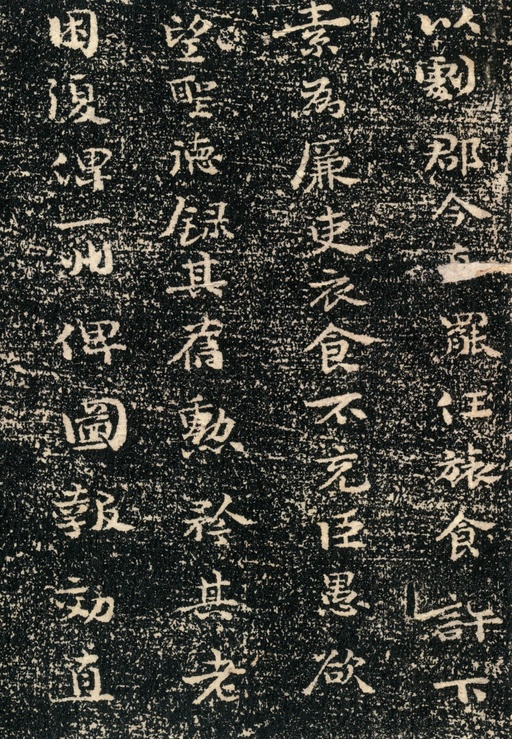 以劇郡今直罷任旅食許下
素為廉吏衣食不充臣愚欲
望聖德錄其舊勳矜其老
困復俾一州俾圖報効直